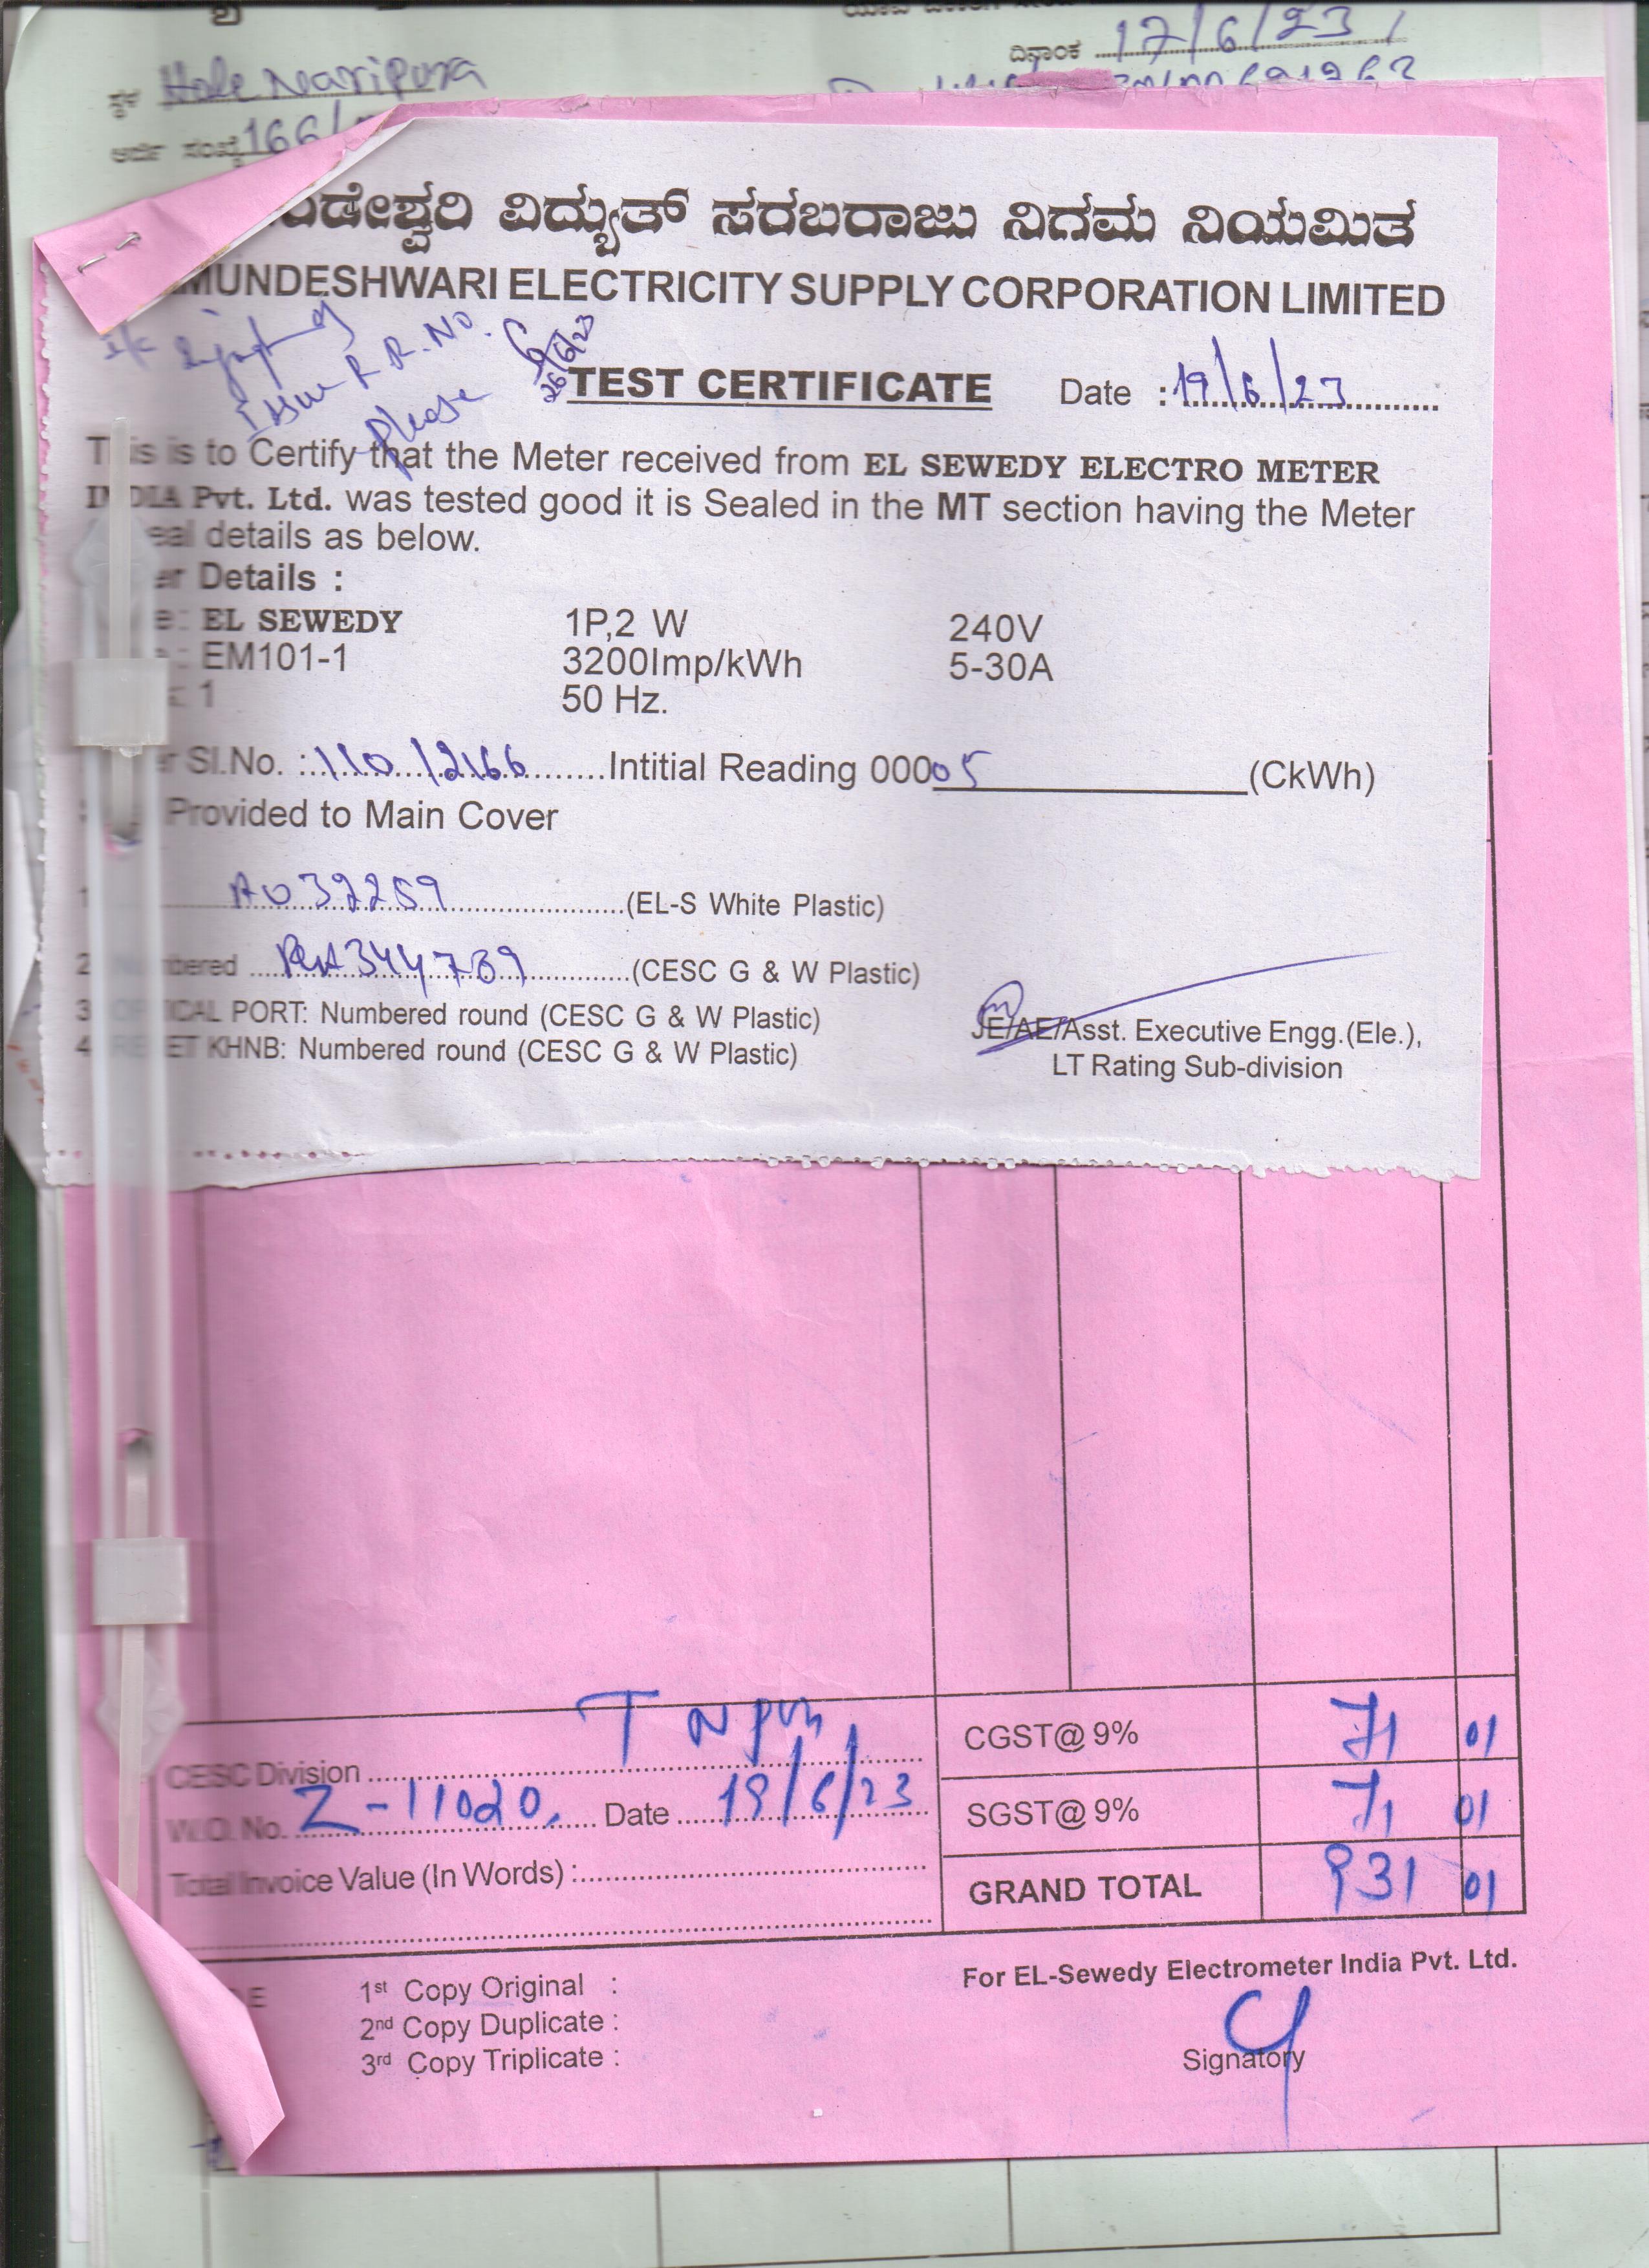 ದಿನಾಂಕ 17/6/23
ಸ್ಥಳ Hole Naripura
ಅರ್ಜಿ ಸಂಖ್ಯೆ 166/
ಂಡೇಶ್ವರಿ ವಿದ್ಯುತ್ ಸರಬರಾಜು ನಿಗಮ ನಿಯಮಿತ
MUNDESHWARI ELECTRICITY SUPPLY CORPORATION LIMITED
Issue R.R.No.
please
26/6/23
TEST CERTIFICATE Date : 19/6/23
This is to Certify that the Meter received from EL SEWEDY ELECTRO METER
INDIA Pvt. Ltd. was tested good it is Sealed in the MT section having the Meter
eal details as below.
er Details :
e: EL SEWEDY 1P,2 W 240V
: EM101-1 3200Imp/kWh 5-30A
: 1 50 Hz.
er Sl.No. : 11012166 Intitial Reading 00005 (CkWh)
Provided to Main Cover
1 A037259 (EL-S White Plastic)
2 mbered 344789 (CESC G & W Plastic)
3 OPTICAL PORT: Numbered round (CESC G & W Plastic)
4 RESET KHNB: Numbered round (CESC G & W Plastic)
JE/AE/Asst. Executive Engg.(Ele.),
LT Rating Sub-division
CESC Division T N pura
W.O. No. Z-11020. Date 19/6/23
Total Invoice Value (In Words) :
CGST@ 9% 71 01
SGST@ 9% 71 01
GRAND TOTAL 931 01
For EL-Sewedy Electrometer India Pvt. Ltd.
1st Copy Original :
2nd Copy Duplicate :
3rd Copy Triplicate :
Signatory